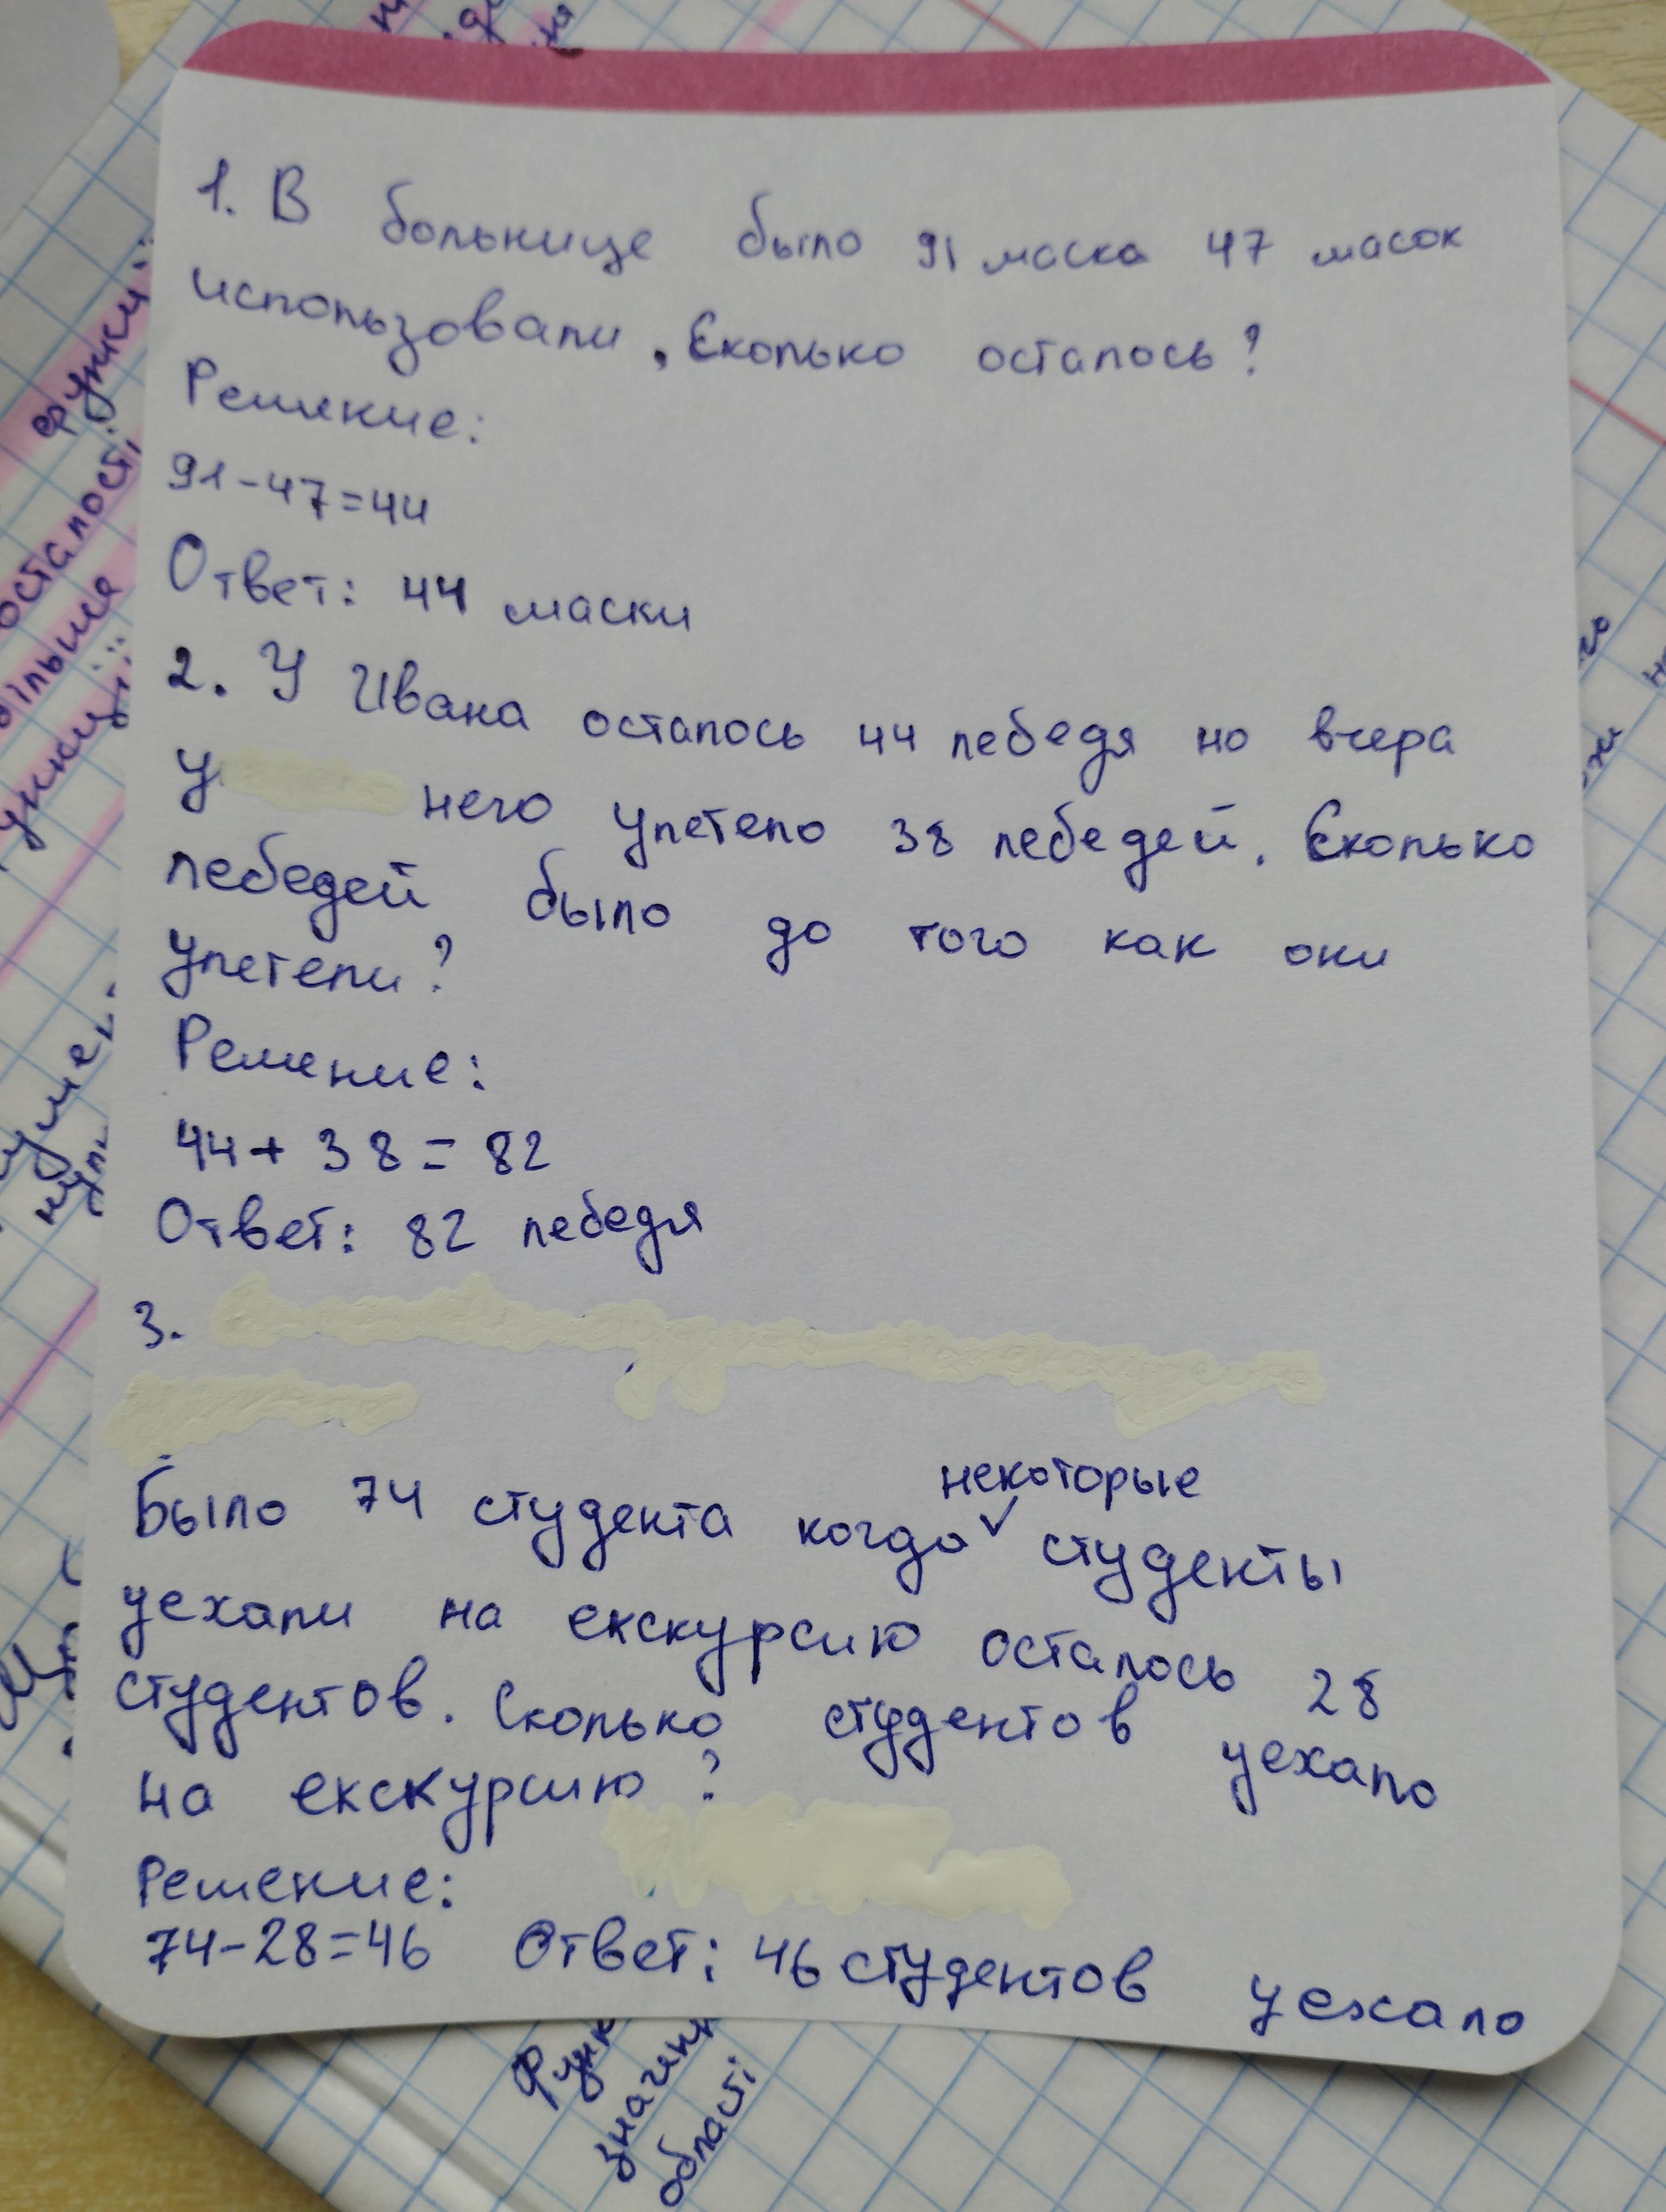 1. В больнице было 91 маска 47 масок
использовали. Сколько осталось?
Решение:
91-47=44
Ответ: 44 маски
2. У Ивана осталось 44 лебедя но вчера
У него улетело 38 лебедей. Сколько
лебедей было до того как они
улетели?
Решение:
44+38=82
Ответ: 82 лебедя
3.
некоторые
Было 74 студента когда ✓ студенты
уехали на екскурсию осталось 28
студентов. Сколько студентов уехало
на екскурсию?
Решение:
74-28=46 Ответ: 46 студентов уехало
області